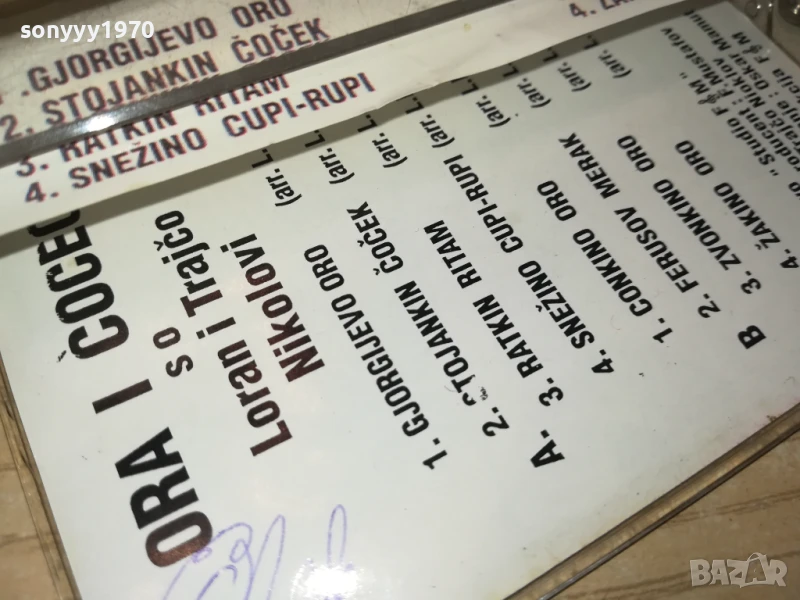 sonyyy1970
GJORGIJEVO ORO
2. STOJANKIN ČOČEK
3. RATKIN RITAM
4. SNEŽINO CUPI-RUPI
4.
ORA I
so
Loran i Trajčo
Nikolovi
1. GJORGIJEVO ORO (arr. L.
2. STOJANKIN ČOČEK (arr. L.
A. 3. RATKIN RITAM (arr. L.
4. SNEŽINO CUPI-RUPI (arr. L.
1. CONKINO ORO (arr. L.
B 2. FERUSOV MERAK (arr.
3. ZVONKINO ORO (arr.
4. ŽAKINO ORO
"Studio F&M"
F. Mustafov
Oskar Mamut
F&M
BAZAR.bg